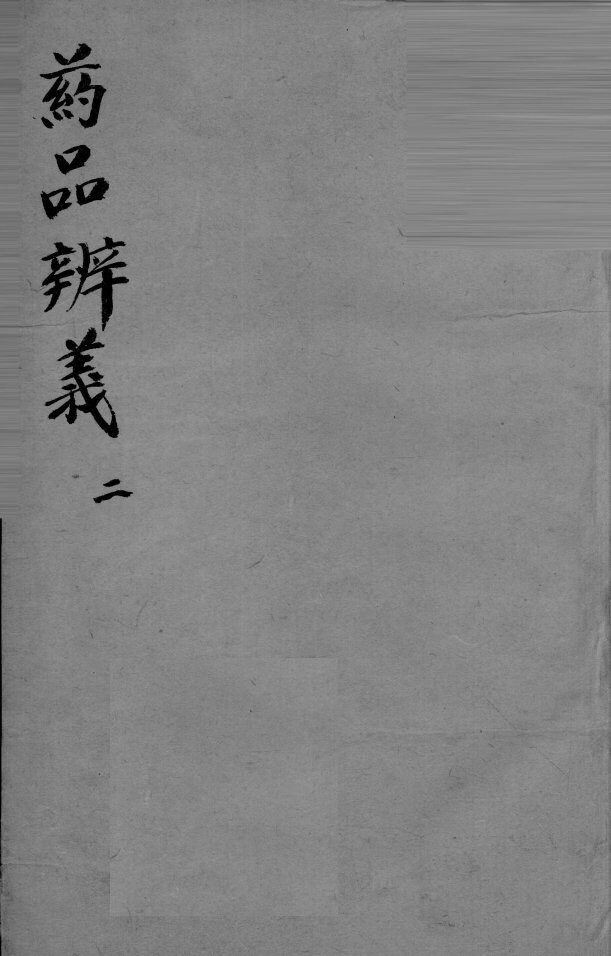 葯品辨義 二